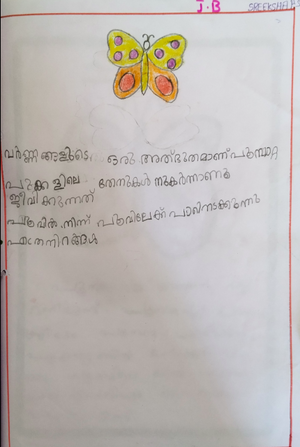 J.B SREEKSHA
വർണ്ണങ്ങളുടെ ഒരു അത്ഭുതമാണ് പൂമ്പാറ്റ
പൂക്കളിലെ തേനുകൾ നുകർന്നാണ്
ജീവിക്കുന്നത്
പൂവിൽ നിന്ന് പൂവിലേക്ക് പാറിനടക്കുന്നു